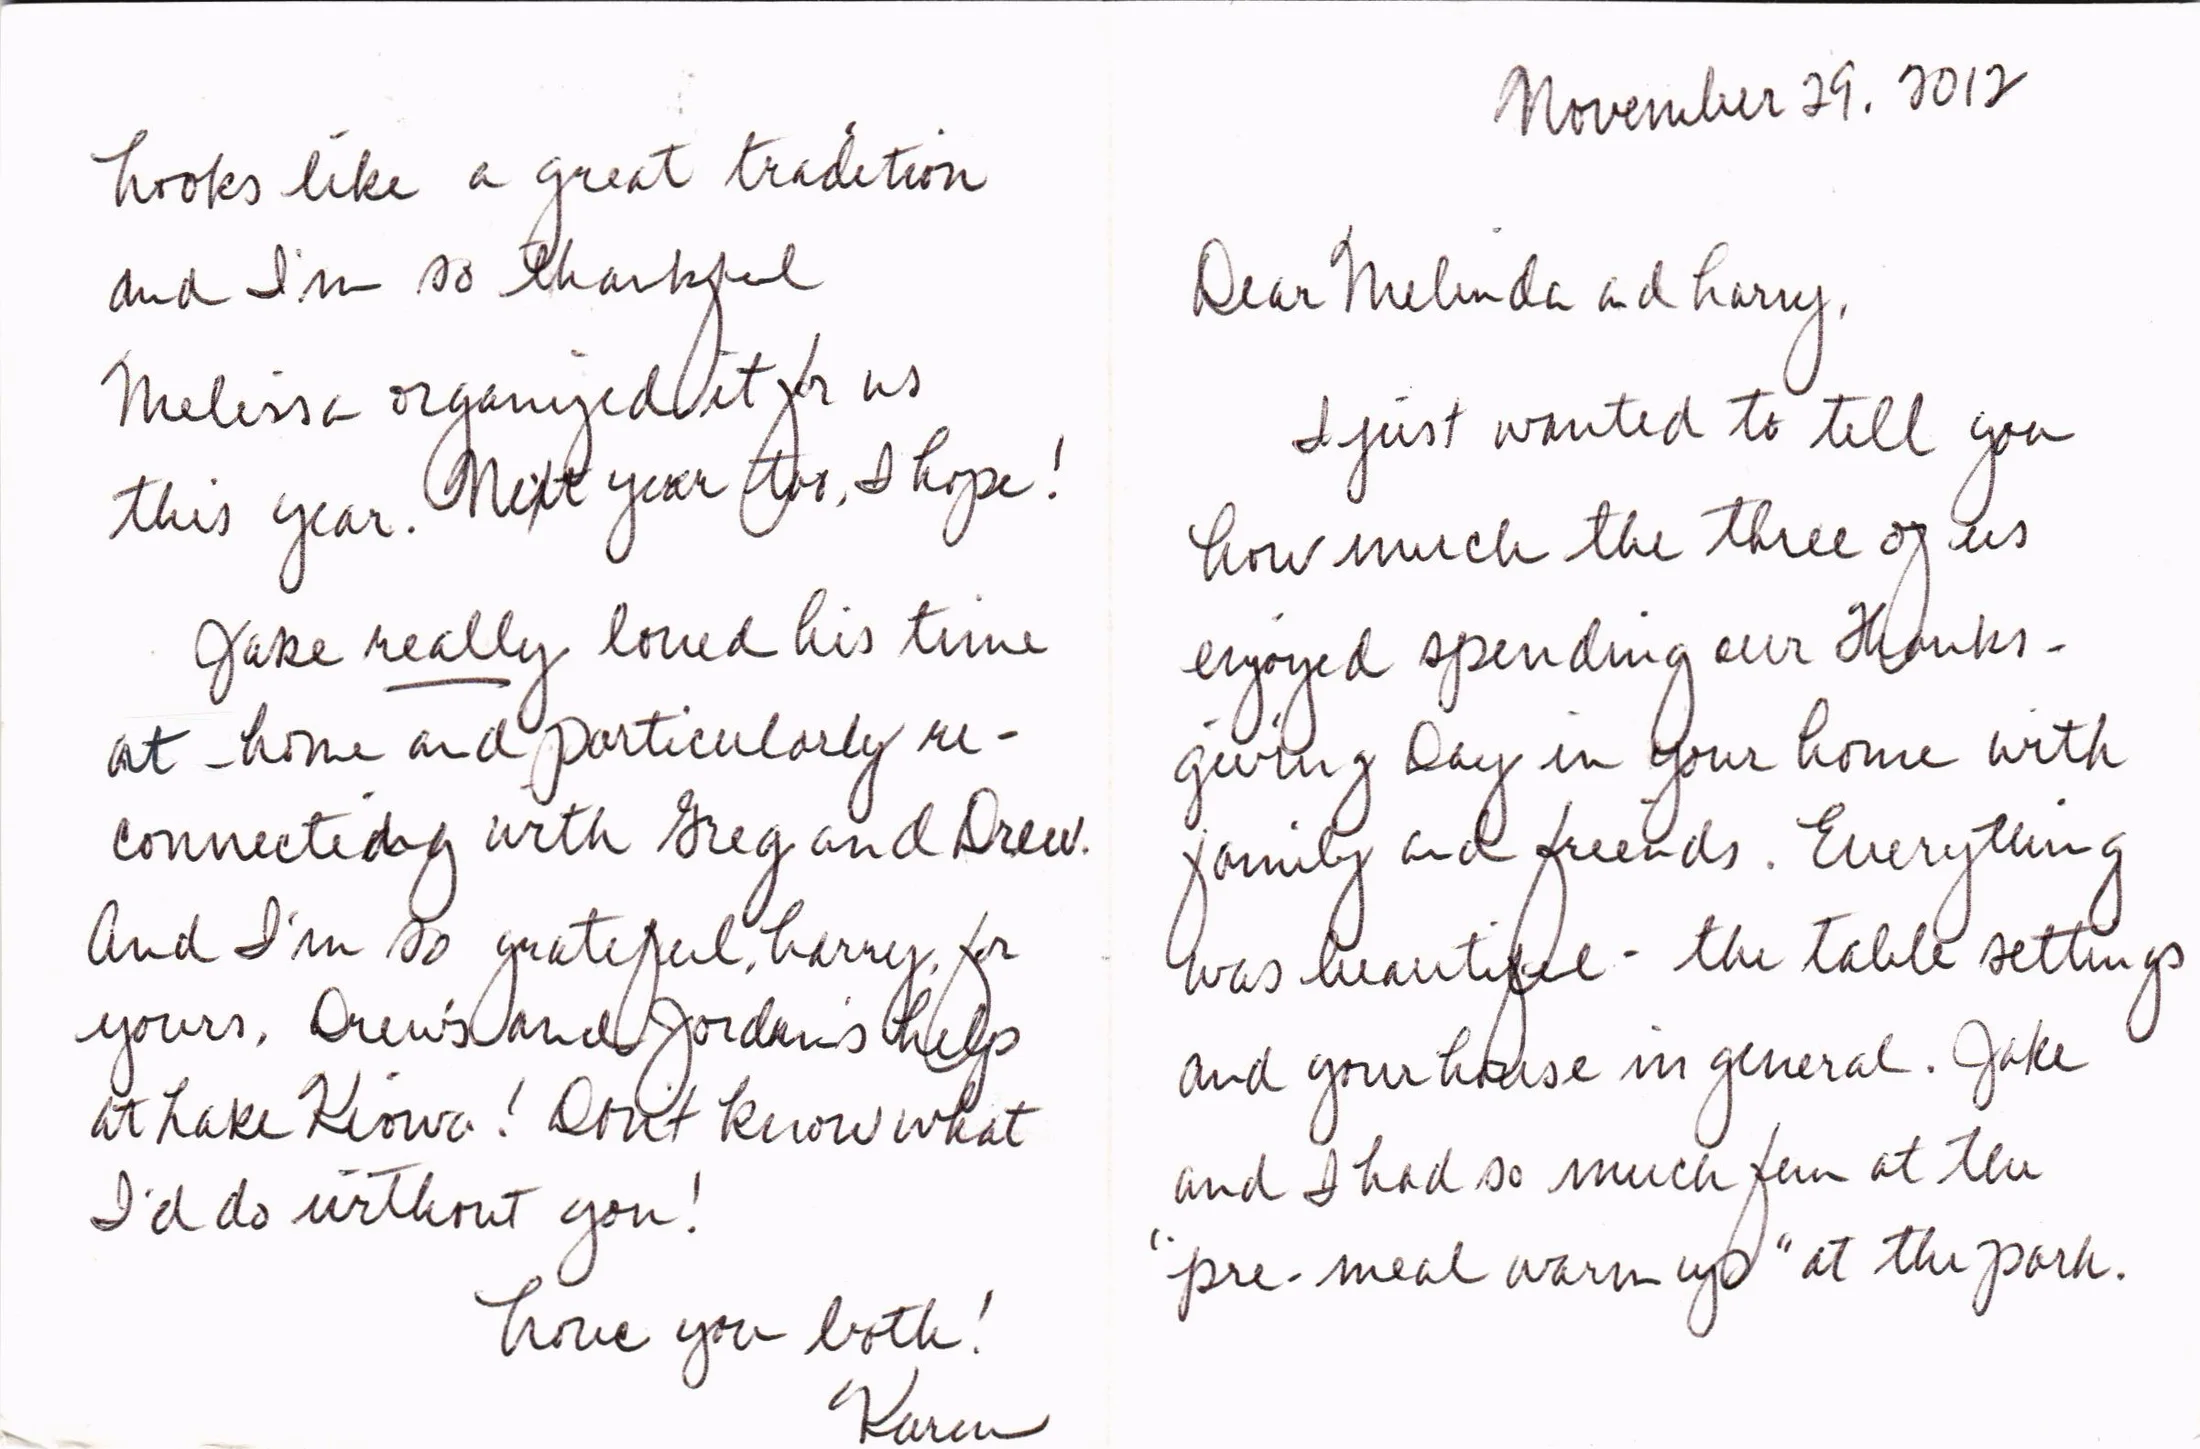 November 29, 2012
Dear Melinda and Larry,
I just wanted to tell you
how much the three of us
enjoyed spending our Thanks-
giving Day in your home with
family and friends. Everything
was beautiful - the table settings
and your house in general. Jake
and I had so much fun at the
"pre-meal warm up" at the park.
Looks like a great tradition
and I'm so thankful
Melissa organized it for us
this year. Next year too, I hope!
Jake really loved his time
at home and particularly re-
connecting with Greg and Drew.
And I'm so grateful, Larry, for
yours, Drew's and Jordan's help
at Lake Kiowa! Don't know what
I'd do without you!
Love you both!
Karen